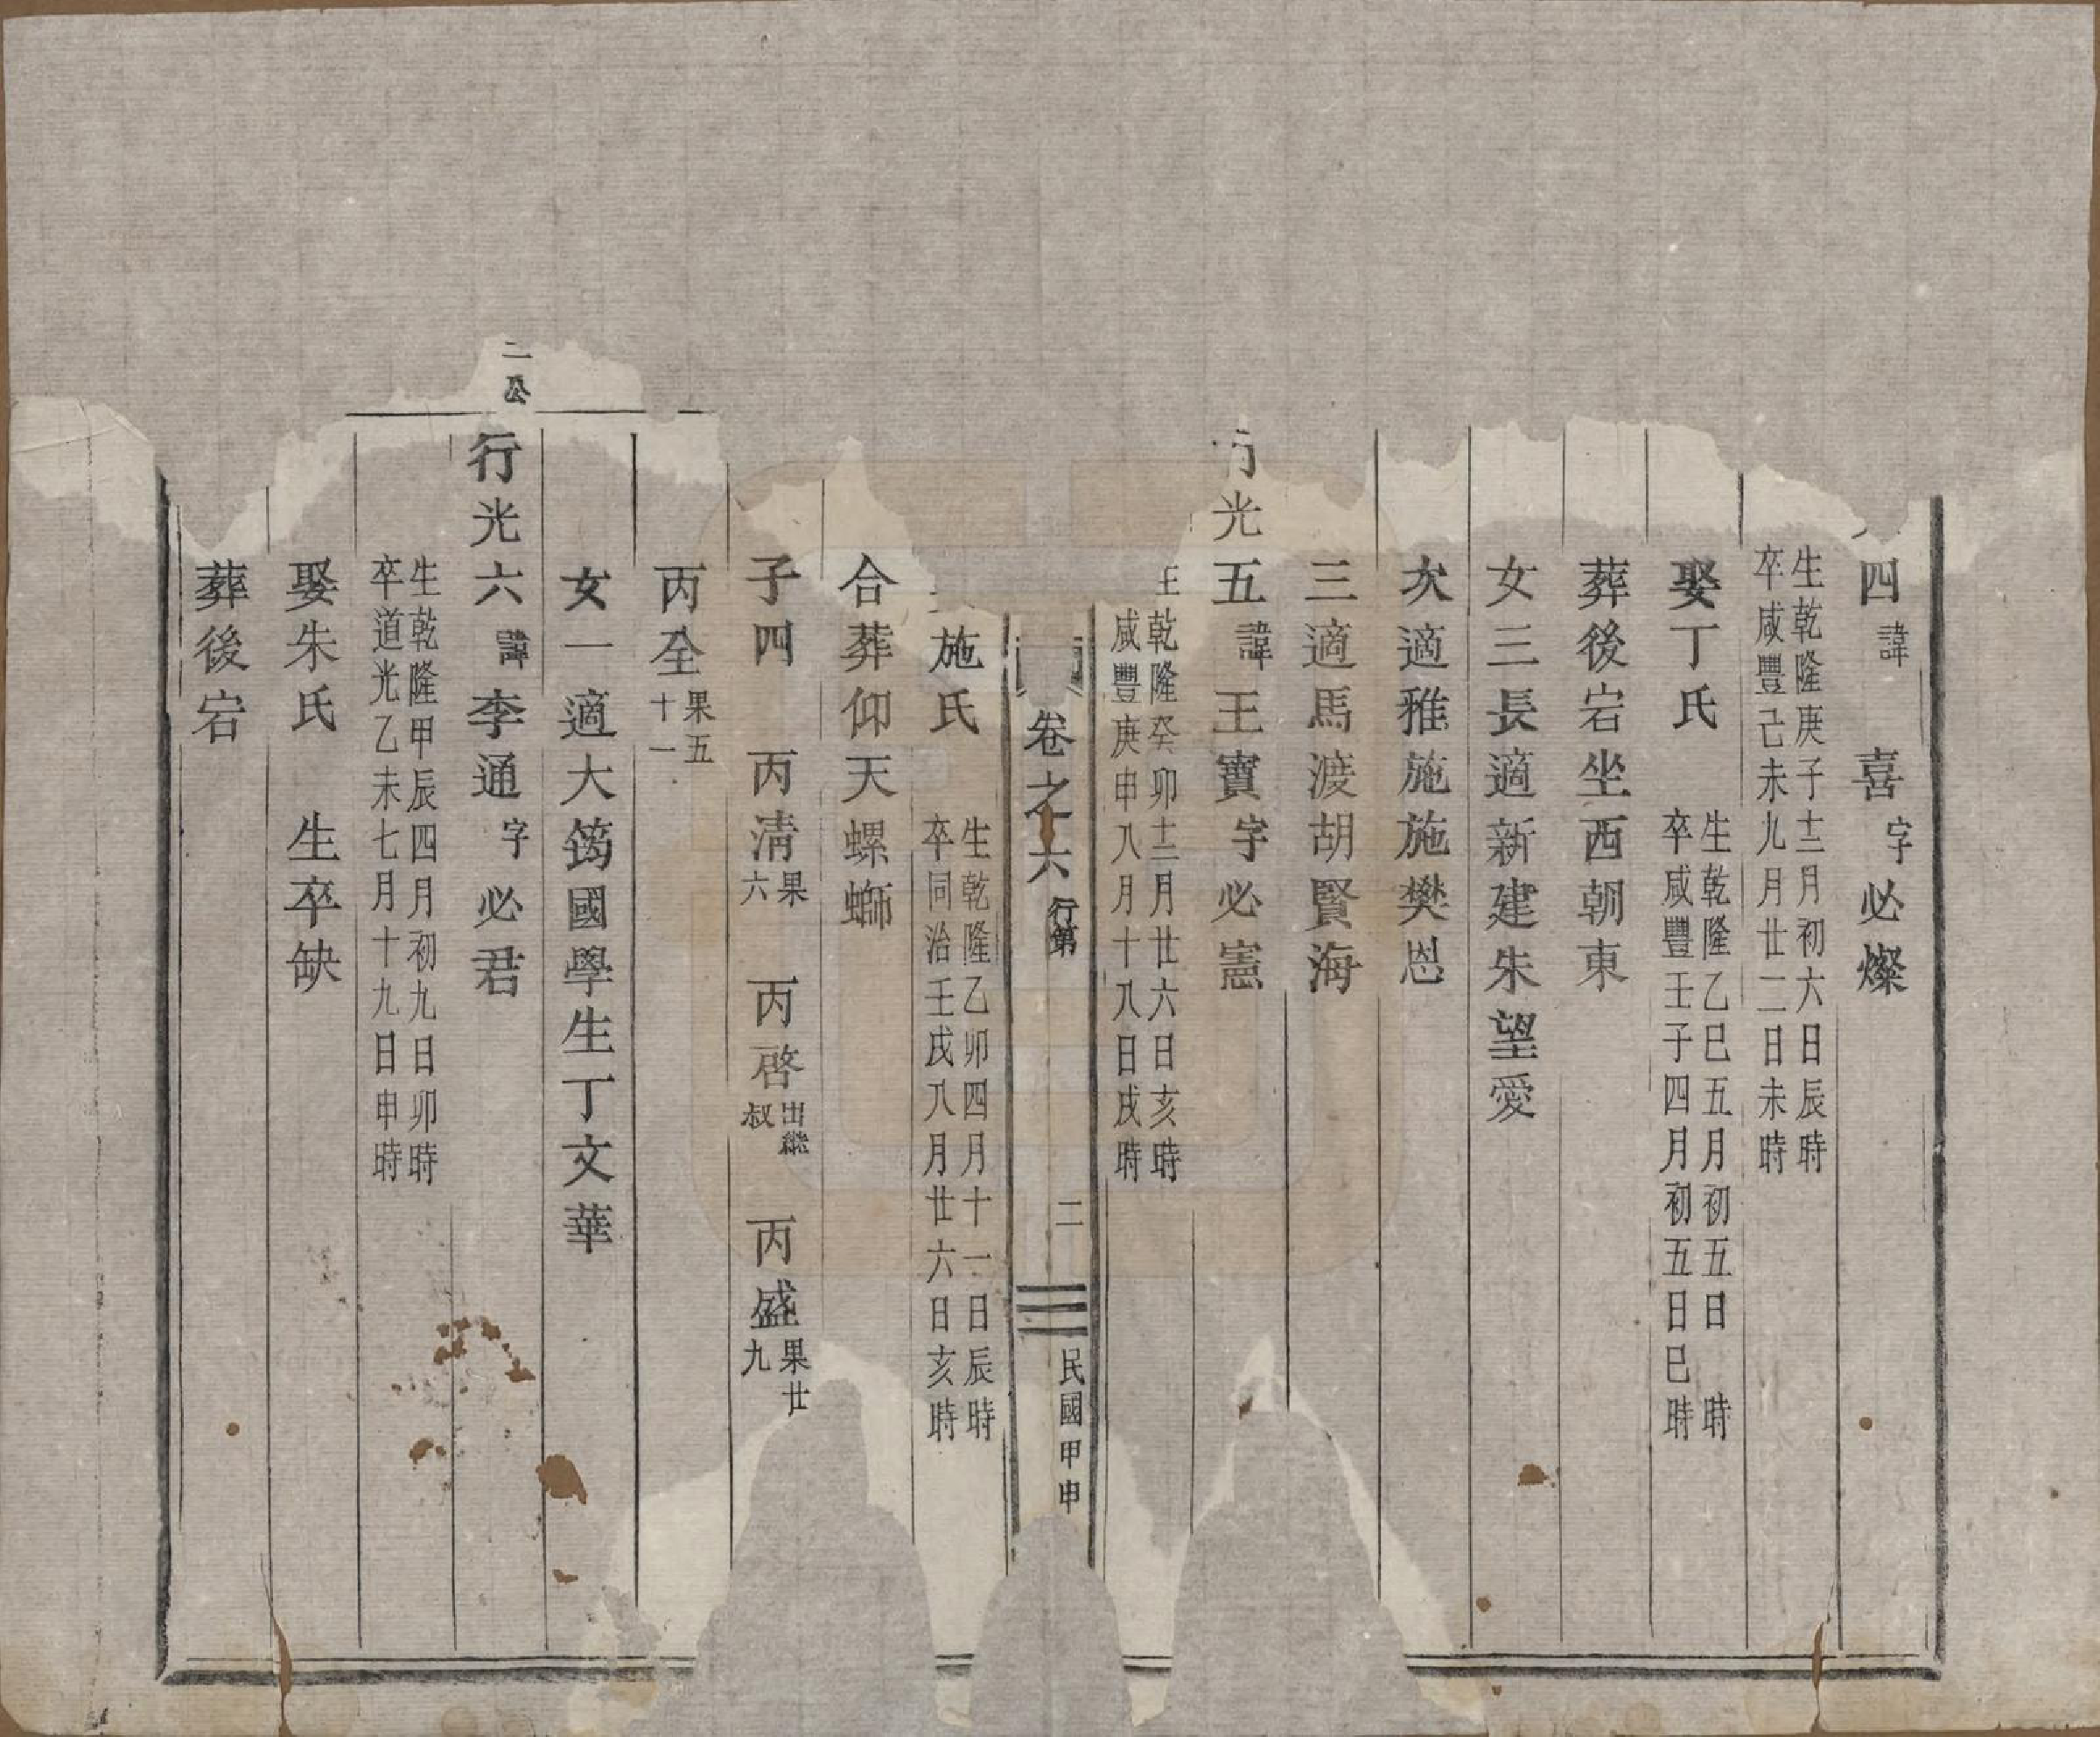 四諱喜字必燦
生乾隆庚子十二月初六日辰時
卒咸豐己未九月廿二日未時
娶丁氏
生乾隆乙巳五月初五日　時
卒咸豐壬子四月初五日巳時
葬後宕坐西朝東
女三長適新建朱望愛
次適雅施施樊恩
三適馬渡胡賢海
行光五諱王寶字必憲
乾隆癸卯十二月廿六日亥時
咸豐庚申八月十八日戌時
卷之六　行第　二　民國甲申
施氏
生乾隆乙卯四月十一日辰時
卒同治壬戌八月廿六日亥時
合葬仰天螺螄
子四　丙清果六　丙啓出繼叔　丙盛果廿九
丙全果五十一
女一適大筠國學生丁文華
二公
行光六諱李通字必君
生乾隆甲辰四月初九日卯時
卒道光乙未七月十九日申時
娶朱氏　生卒缺
葬後宕